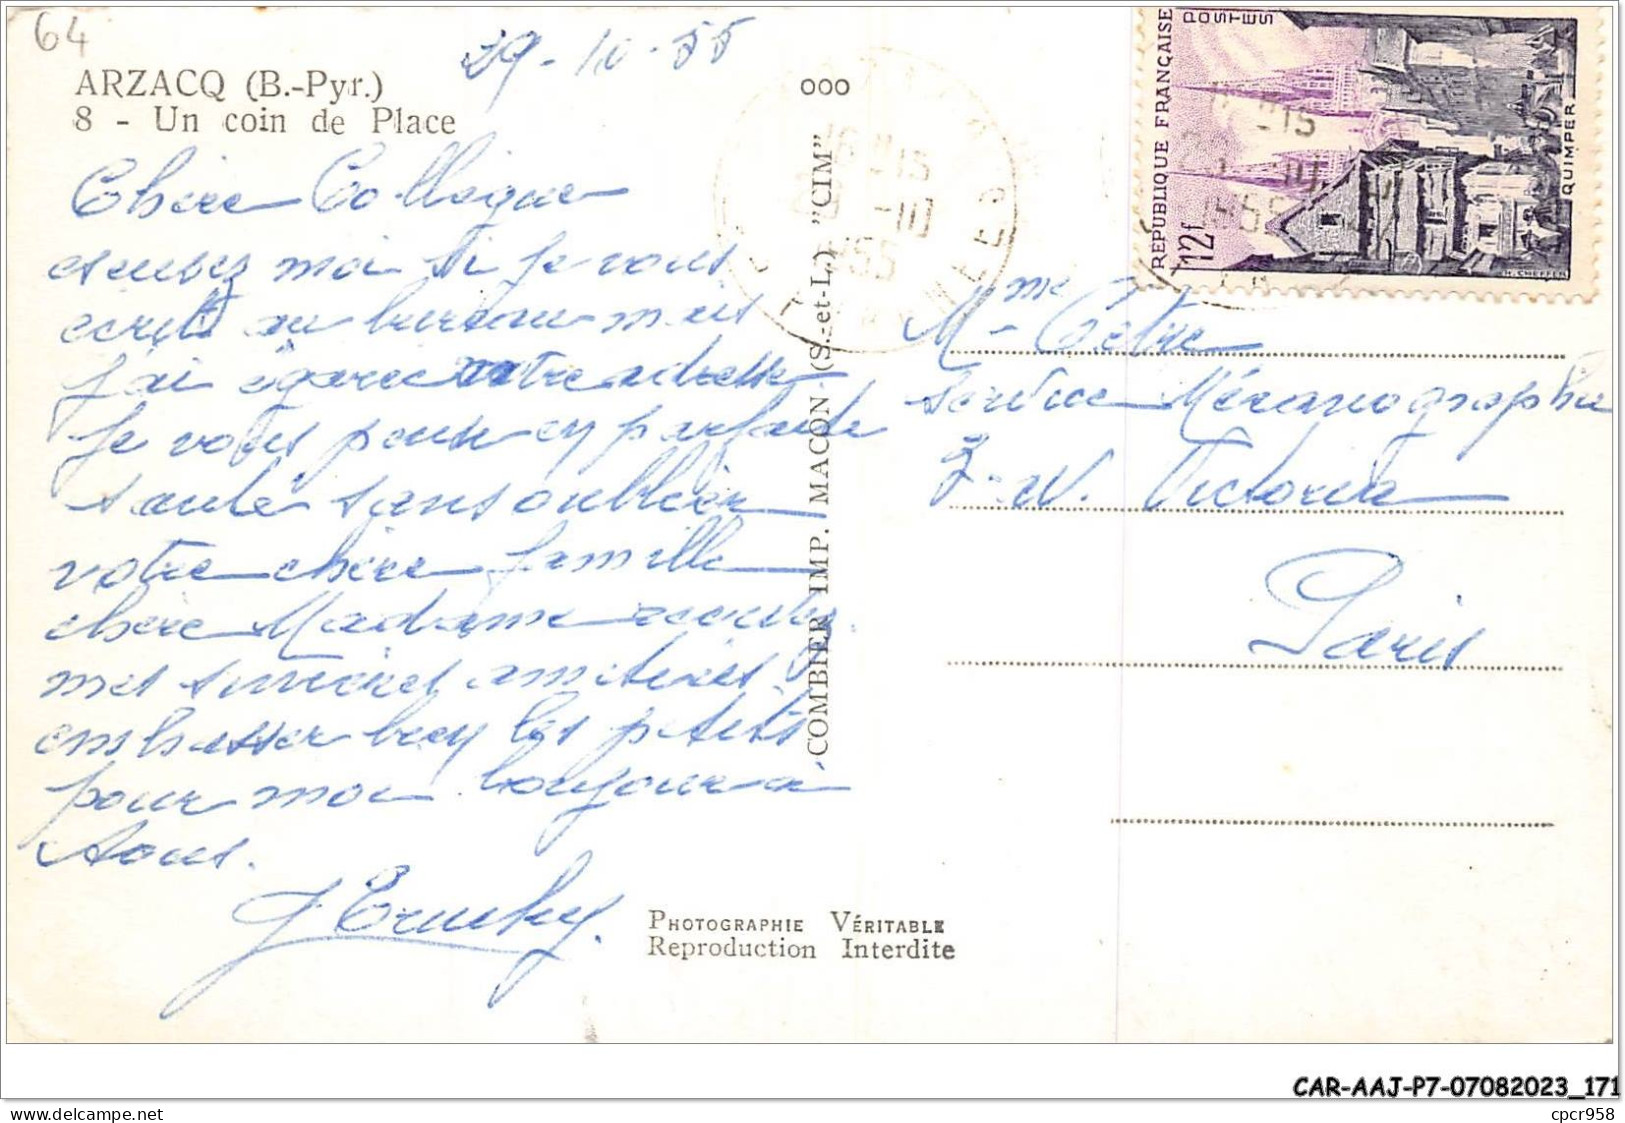 64
29-10-55
ARZACQ (B.-Pyr.)
8 - Un coin de Place
Chère Collègue
excusez moi si je vous
ecrit au bureau mais
j'ai égaré votre adresse
Je vous pense en parfaite
santé sans oublier
votre chère famille
chère Madame recevez
mes sincères amitiés
embrasser bien les petits
pour moi bonjour à
tous.
COMBIER IMP. MACON (S.-et-L.) "CIM"
PHOTOGRAPHIE VÉRITABLE
Reproduction Interdite
REPUBLIQUE FRANÇAISE
POSTES
12f
QUIMPER
H. CHEFFER
16 H15
29 -10
1955
Mme
Service Mécanographie
Victoria
Paris
CAR-AAJ-P7-07082023_171
delcampe.net
cpcr958